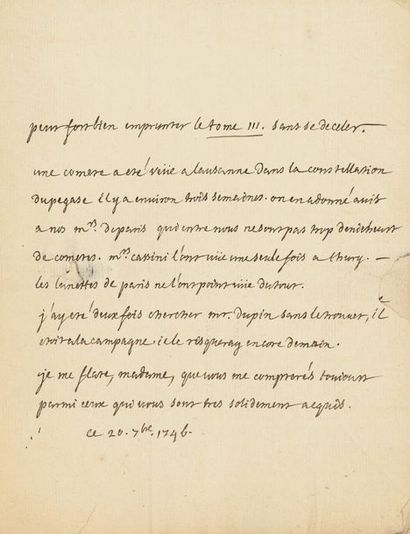 peut fort bien emprunter le tome III. sans se deceler.
une comete a eté vüe a lausanne dans la constellation
du pegase il y a environ trois semaines. on en a donné avis
a nos mrs. de paris qui entre nous ne sont pas trop denicheurs
de cometes. mrs. cassini l'ont vüe une seule fois a thury. —
les lunettes de paris ne l'ont point vüe du tout.
j'ay eté deux fois chercher mr. dupin sans le trouver, il
etoit a la campagne. je le risqueray encore demain.
je me flate, madame, que vous me compterés toujours
parmi ceux qui vous sont tres solidement acquis.
ce 20. 7bre. 1746.